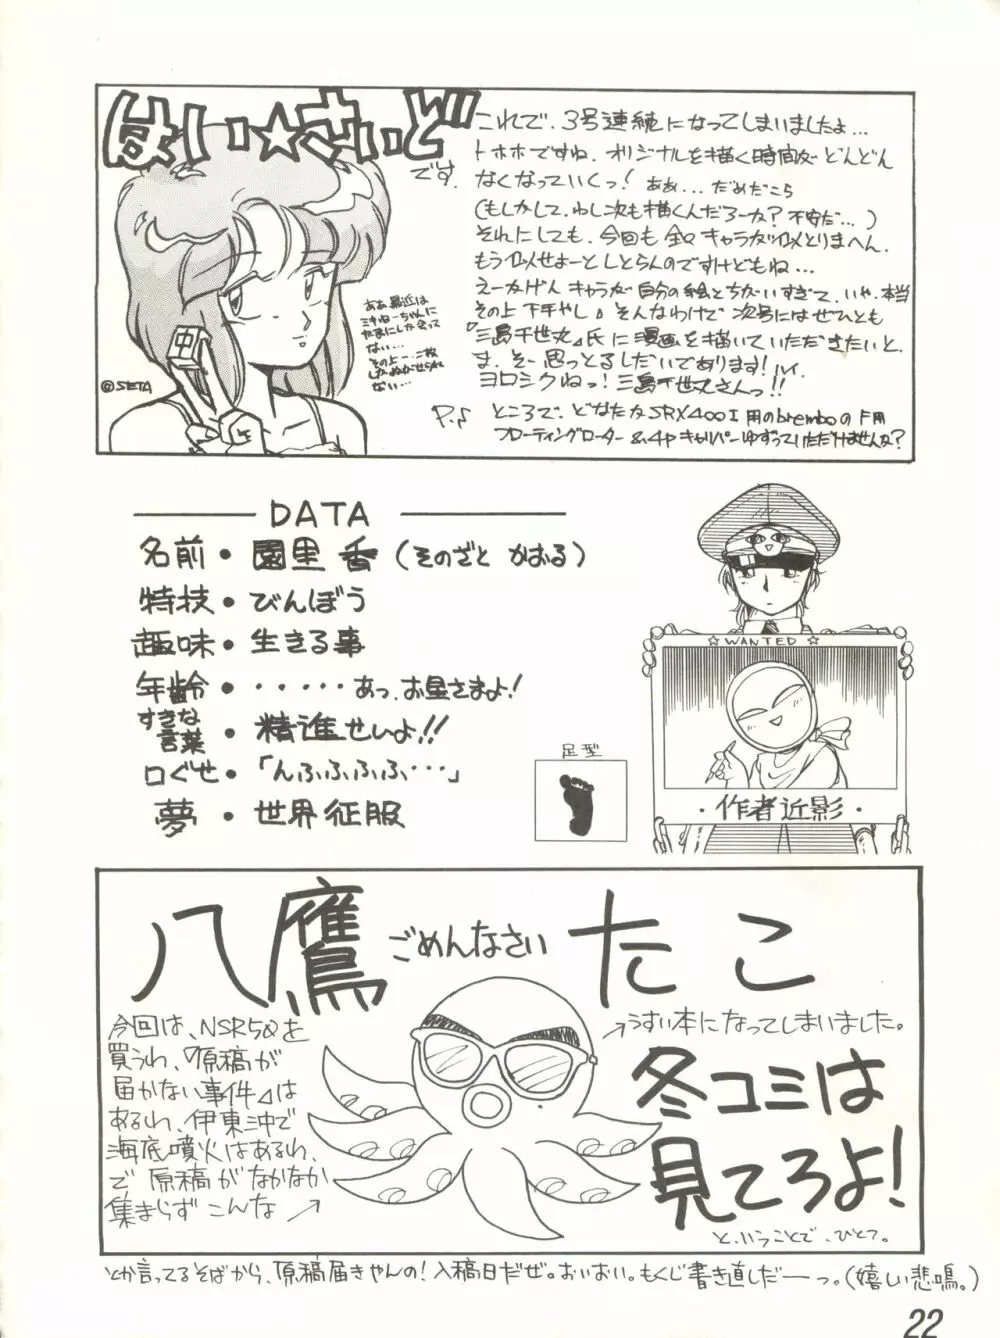 はい☆さいど
です.
これで、3号連続になってしまいましたよ…
トホホですね、オリジナルを描く時間がどんどん
なくなっていくっ! ああ…だめだこら
(もしかして、わし次も描くんだろーか?不安だ…)
それにしても、今回も全々キャラがイメとりまへん、
もうイメせよーとしとらんのですけどもね…
えーかげんキャラが自分の絵とちがいすぎて、いや、本当
その上下手やし♪そんなわけで次号にはぜひとも
『三島千世丸』氏に漫画を描いていただきたいと、
ま、そー思っとるしだいであります!ハイ、
ヨロシクねっ!三島千世丸さんっ!!
P.♪ ところで、どなたかSRX400I用のbremboのF用
フローティングローター&4pキャリパーゆずっていただけませんか?
ああ最近は
ミキねーちゃんに
たまにしか会って
ない…
その上…二枚
しかぬがせられ
ない…
中
©SETA
DATA
名前・園里 香(そのざと かおる)
特技・びんぼう
趣味・生きる事
年齢・・・・・・あっ、お星さまよ!
すきな
言葉・精進せいよ!!
口ぐせ・「んふふふふ…」
夢・世界征服
足型
☆WANTED☆
・作者近影・
八鷹 ごめんなさい たこ
今回は、NSR50を
買うわ、『原稿が
届かない事件』は
あるわ、伊東沖で
海底噴火はあるわ、
で 原稿がなかなか
集まらず こんな
うすい本になってしまいました。
冬コミは
見てろよ!
と、いうことで、ひとつ。
とか言ってるそばから、原稿届きやんの!入稿日だぜ。おいおい。もくじ書き直しだーっ。(嬉しい悲鳴。)
22